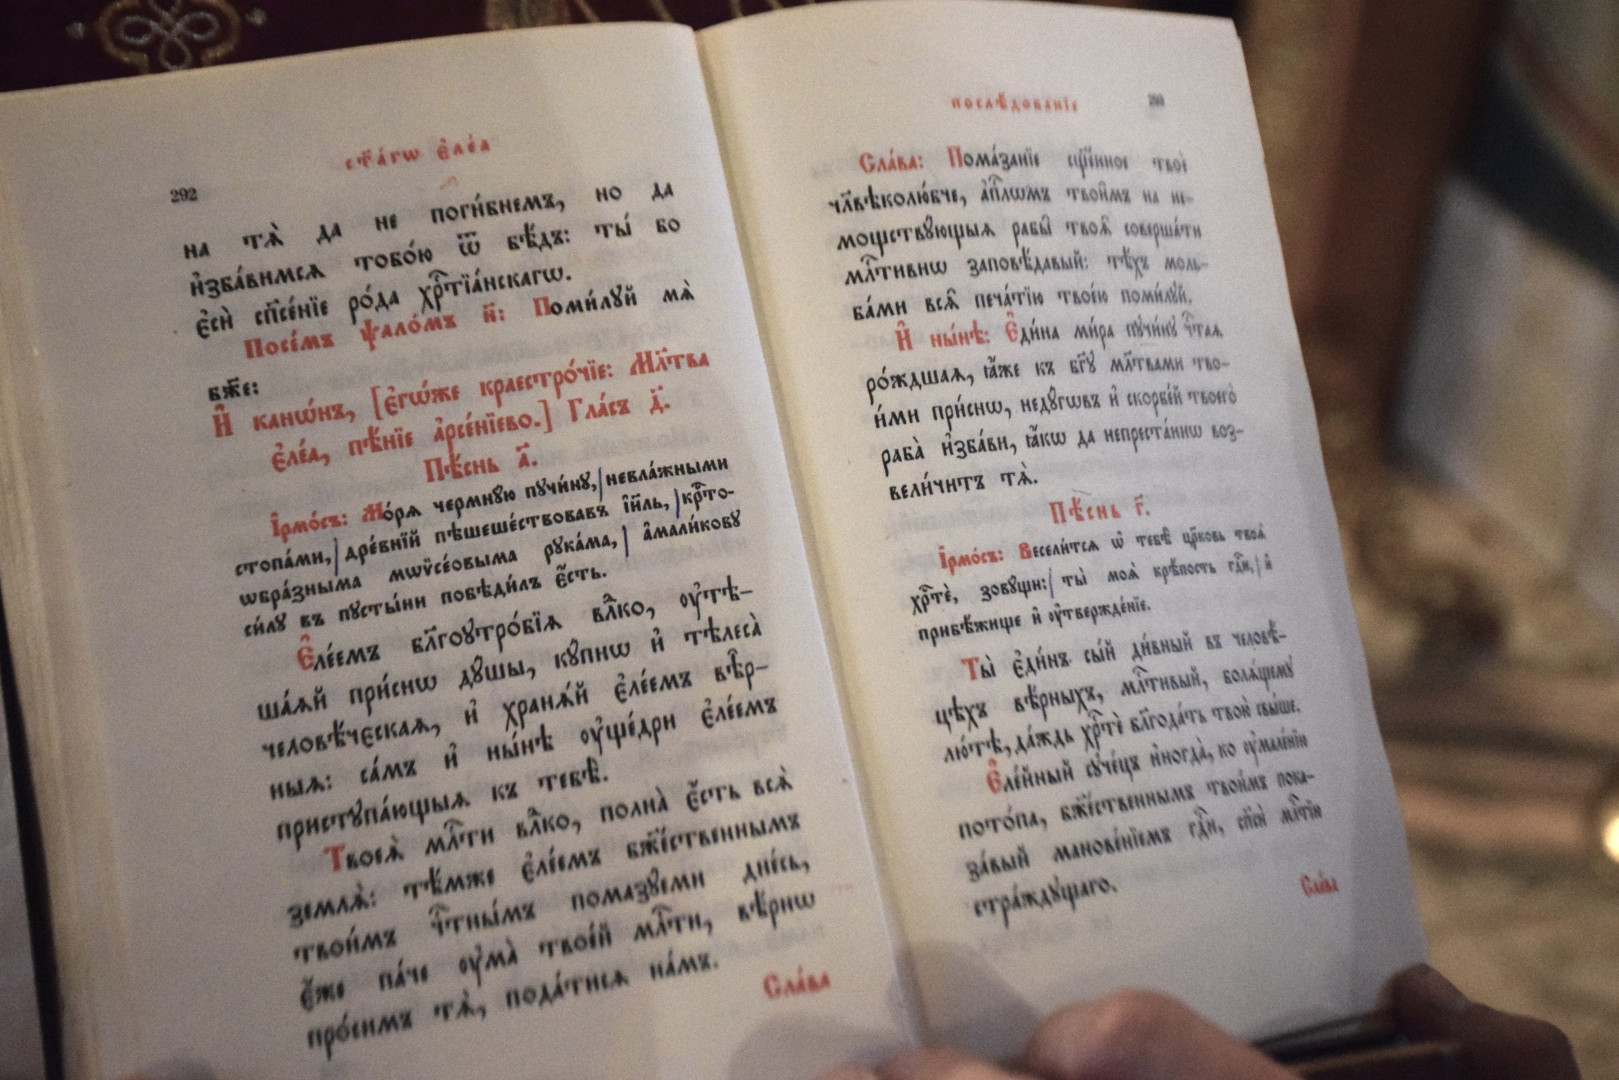 292
ст҃а́гѡ є҆ле́а
на тѧ̀ да не поги́бнемъ, но да
и҆зба́вимсѧ тобо́ю ѿ бѣ́дъ: ты́ бо
є҆сѝ сп҃се́нїе ро́да хрⷭ҇тїа́нскагѡ.
Посе́мъ ѱало́мъ н҃: Поми́лꙋй мѧ̀
бж҃е:
И҆ канѡ́нъ, [є҆гѡ́же краестро́чїе: Мл҃тва
є҆ле́а, пѣ́нїе а҆рсе́нїево.] Гла́съ д҃.
Пѣ́снь а҃.
І҆рмо́съ: Мо́рѧ чермнꙋ́ю пꙋчи́нꙋ, невла́жными
стопа́ми, дре́внїй пѣшеше́ствовавъ і҆и҃ль, крⷭ҇то-
ѡбра́зныма мѡѷсе́овыма рꙋка́ма, а҆мали́ковꙋ
си́лꙋ въ пꙋсты́ни побѣди́лъ є҆́сть.
Є҆ле́емъ бл҃гоꙋтро́бїѧ вл҃ко, ᲂу҆тѣ-
ша́ѧй при́снѡ дꙋ́шы, кꙋ́пнѡ и҆ тѣлеса̀
человѣ́чєскаѧ, и҆ хранѧ́й є҆ле́емъ вѣ̑р-
ныѧ: са́мъ и҆ ны́нѣ ᲂу҆ще́дри є҆ле́емъ
пристꙋпа́ющыѧ къ тебѣ̀.
Твоеѧ̀ млⷭ҇ти вл҃ко, полна̀ є҆́сть всѧ̀
землѧ̀: тѣ́мже є҆ле́емъ бж҃е́ственнымъ
твои́мъ чⷭ҇тны́мъ помазꙋ́еми дне́сь,
є҆́же па́че ᲂу҆ма̀ твое́й млⷭ҇ти, вѣ́рнѡ
про́симъ тѧ̀, пода́тисѧ на́мъ.
Сла́ва
послѣ́дованїе
293
Сла́ва: Пома́занїе сщ҃е́нное твоѐ
чл҃вѣколю́бче, а҆пⷭ҇лѡмъ твои̑мъ на не-
мощствꙋ́ющыѧ рабы̑ твоѧ̑ соверша́ти
млⷭ҇тивнѡ заповѣ́давый: тѣ́хъ моль-
ба́ми всѧ̑ печа́тїю твое́ю поми́лꙋй.
И҆ ны́нѣ: Є҆ди́на ми́ра пꙋчи́нꙋ чⷭ҇таѧ
ро́ждшаѧ, ꙗ҆́же къ бг҃ꙋ мл҃твами тво-
и́ми при́снѡ, недꙋ́гѡвъ и҆ скорбе́й твоего̀
раба̀ и҆зба́ви, ꙗ҆́кѡ да непреста́ннѡ воз-
вели́читъ тѧ̀.
Пѣ́снь г҃.
І҆рмо́съ: Весели́тсѧ ѡ҆ тебѣ̀ цр҃ковь твоѧ̀
хрⷭ҇тѐ, зовꙋ́щи: ты̀ моѧ̀ крѣ́пость гдⷭ҇и, и҆
прибѣ́жище и҆ ᲂу҆твержде́нїе.
Ты̀ є҆ди́нъ сы́й ди́вный въ человѣ́-
цѣхъ вѣ́рныхъ, млⷭ҇тивый, болѧ́щемꙋ
лю́тѣ, да́ждь хрⷭ҇тѐ бл҃года́ть твою̀ свы́ше.
Є҆ле́йный сꙋче́цъ и҆ногда̀, ко ᲂу҆мале́нїю
пото́па, бж҃е́ственнымъ твои́мъ пока-
за́вый манове́нїемъ гдⷭ҇и, сп҃сѝ млⷭ҇тїю
стра́ждꙋщаго.
Сла́ва